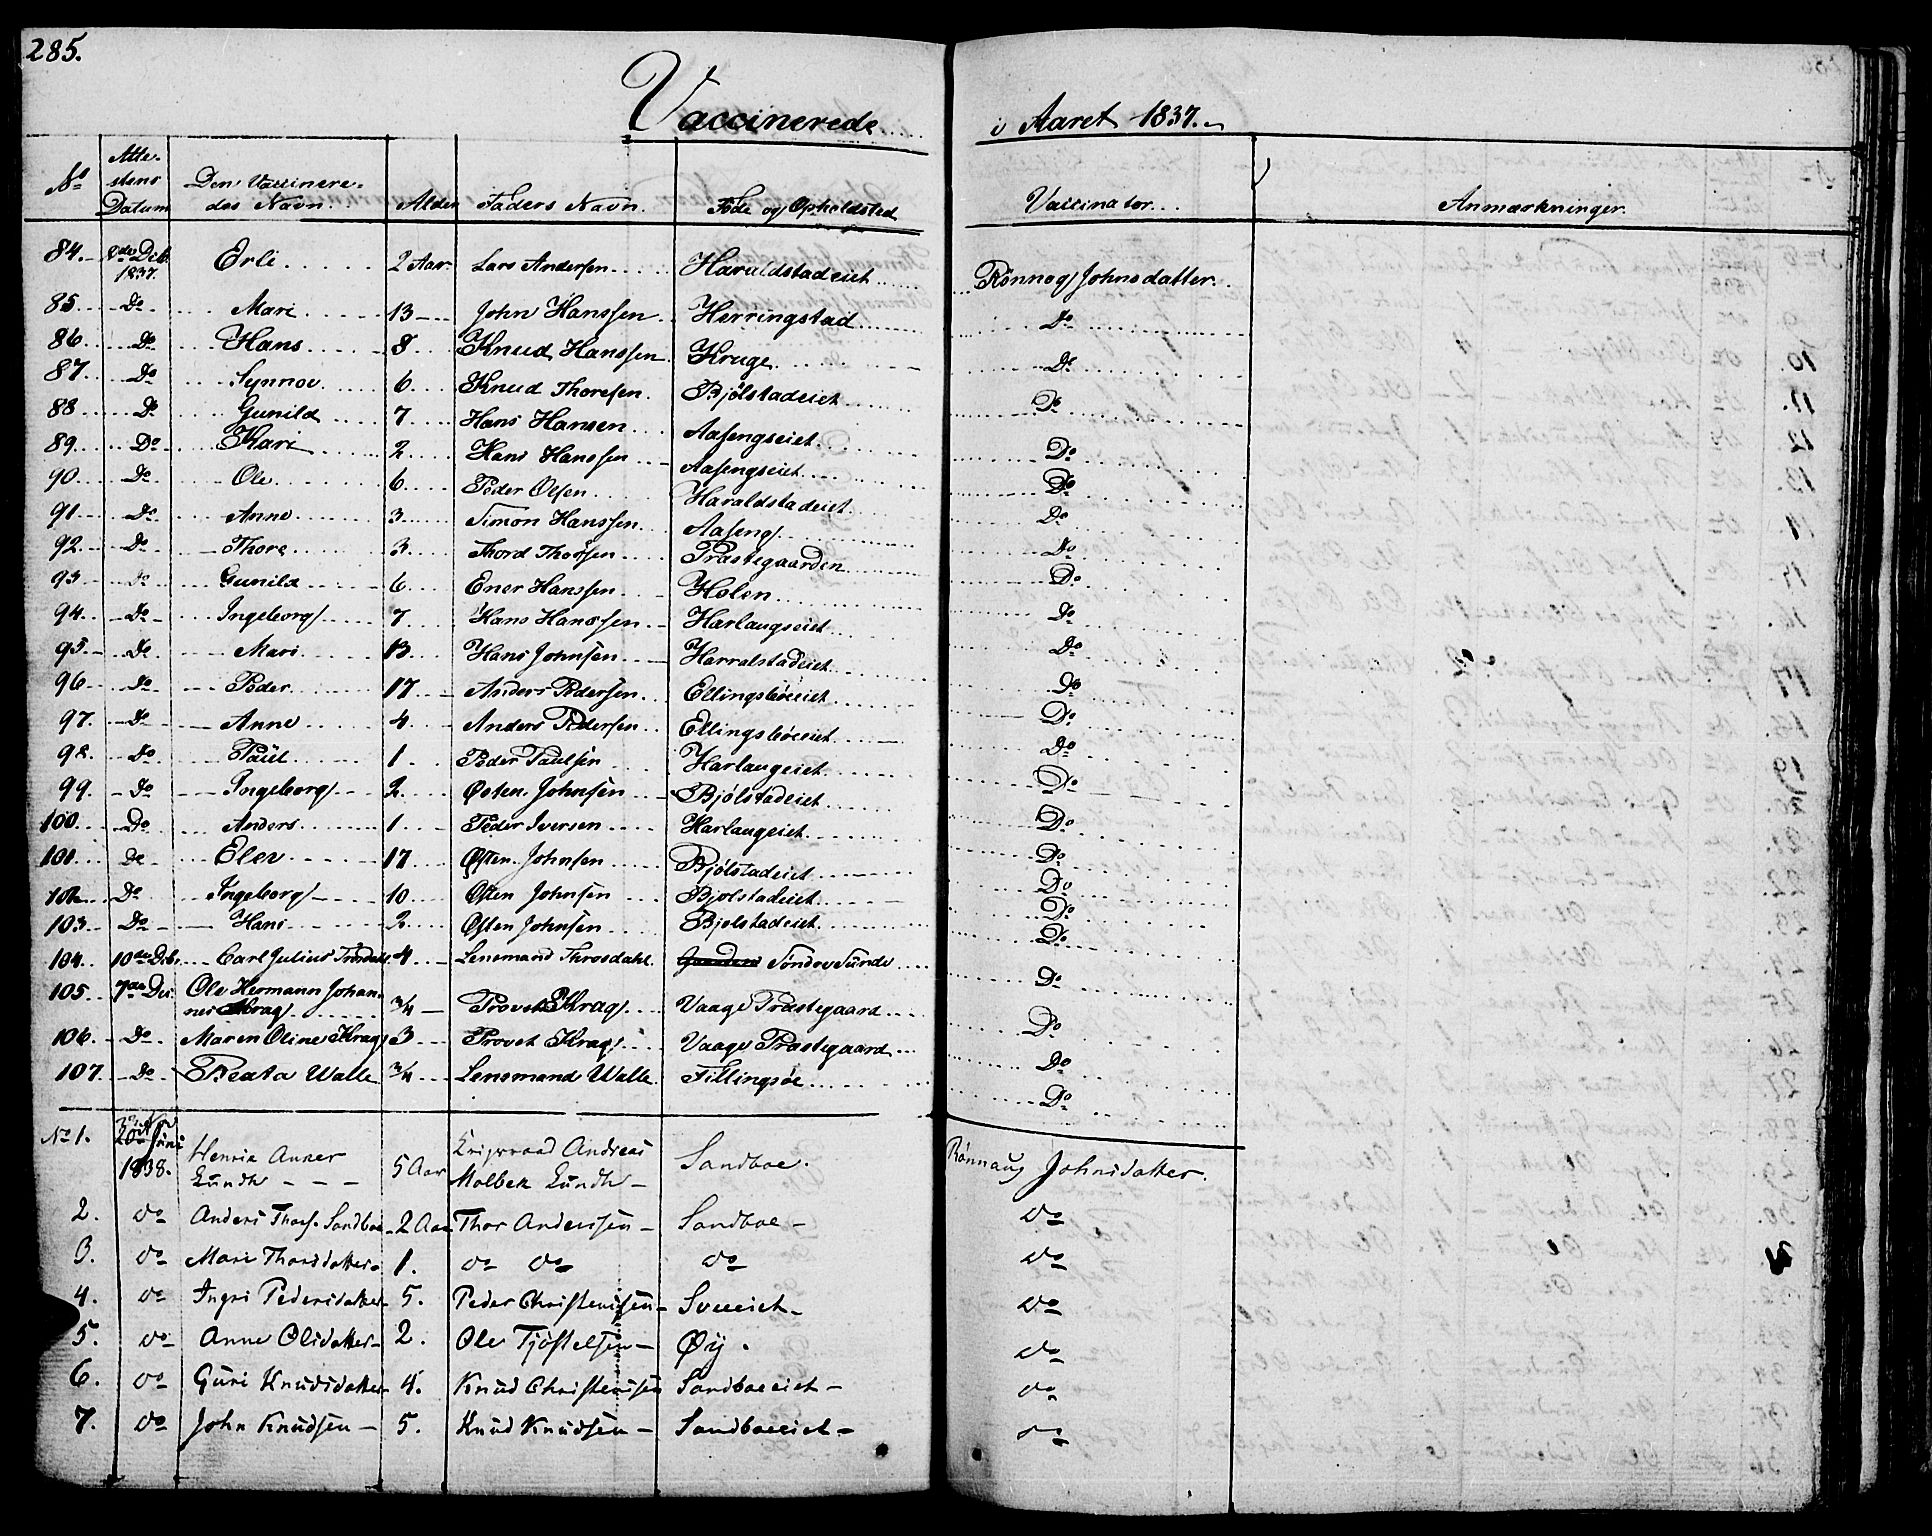 285.
Vaccinerede i Aaret 1837.
No Atte-stens Datum Den Vaccinere-des Navn. Alder Faders Navn. Føde og Opholdsted Vaccinator. Anmærkninger.
84. 8de Deb. 1837. Erli 2 Aar Lars Andersen Haraldstadeiet Rönnog Johnsdatter.
85. Do Mari 13 John Hanssen Herringstad Do
86. Do Hans 8 Knud Hanssen Kruge Do
87. Do Synnov 6. Knud Thoresen. Bjølstadeiet Do
88. Do Gunild 7 Hans Hansen Aasengseiet Do
89. Do Kari 2. Hans Hanssen Aasengseiet Do
90. Do Ole 6. Peder Olsen Haraldstadeiet Do
91. Do Anne 3. Simon Hanssen Aaseng Do
92. Do Thore 3. Thord Thorsen Præstegaarden Do
93. Do Gunild 6 Ener Hanssen Holen Do
94. Do Ingeborg 7 Hans Hanssen Harlaugseiet Do
95. Do Mari 13 Hans Johnsen Harralstadeiet Do
96. Do Peder 17 Anders Pedersen Ellingsbøeiet Do
97. Do Anne 4. Anders Pedersen Ellingsbøeiet Do
98. Do Paül 1 Peder Paulsen Harlaugeiet Do
99. Do Ingeborg 2. Østen Johnsen Bjølstadeiet Do
100. Do Anders 1 Peder Iversen Harlaugeiet Do
101. Do Elev 17 Østen Johnsen Bjølstadeiet Do
102. Do Ingeborg 10 Østen Johnsen Bjølstadeiet Do
103. Do Hans 2. Østen Johnsen Bjølstadeiet Do
104. 10de Deb. Carl Julius 4 Lensmand Throsdahl. Søndre Sunde Do
105. 7de Dec. Ole Hermann Johan-
nes Krag 3/4 Provst Krag Vaage Præstegaard Do
106. Do Maren Oline Krag 3 Provst Krag Vaage Præstegaard Do
107. Do Beata Walle 3/4 Lensmand Walle Tillingsøe Do
No 1. 20de Juni
1838. Henrik Anker
Lundh 5 Aar Krigsraad Andreas
Molbek Lundh Sandboe. Rønnaug Johnsdatter.
2. do Anders Thors. Sandboe 2 Aar Thor Anderssen Sandboe do
3. do Mari Thorsdatter 1. do do do do
4. do Ingri Pedersdatter 5. Peder Christenssen Sveeiet do
5. do Anne Olsdatter 2. Ole Tjøstelsen Øy. do
6. do Guri Knudsdatter 4. Knud Christenssen Sandboeeiet do
7. do John Knudsen 5. Knud Knudsen Sandboeeiet do